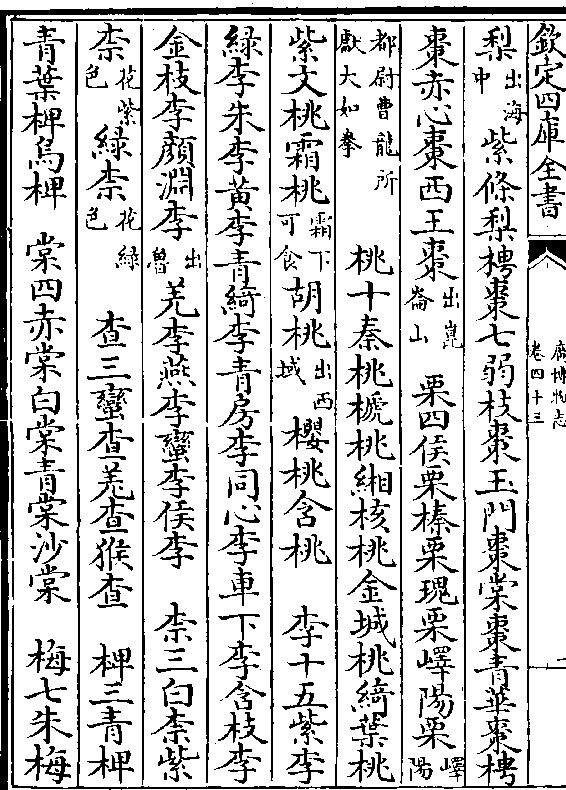 欽定四庫全書
廣博物志
卷四十三
二
梨出海中紫條梨梬棗七弱枝棗玉門棗棠棗青華棗梬
棗赤心棗西王棗出崑崙山栗四侯栗榛栗瑰栗嶧陽栗嶧陽
都尉曹龍所獻大如拳桃十秦桃榹桃緗核桃金城桃綺葉桃
紫文桃霜桃霜下可食胡桃出西域櫻桃含桃李十五紫李
綠李朱李黃李青綺李青房李同心李車下李含枝李
金枝李顏淵李出魯羌李燕李蠻李侯李柰三白柰紫
柰花紫色綠柰花綠色查三蠻查羌查猴查椑三青椑
青葉椑烏椑棠四赤棠白棠青棠沙棠梅七朱梅